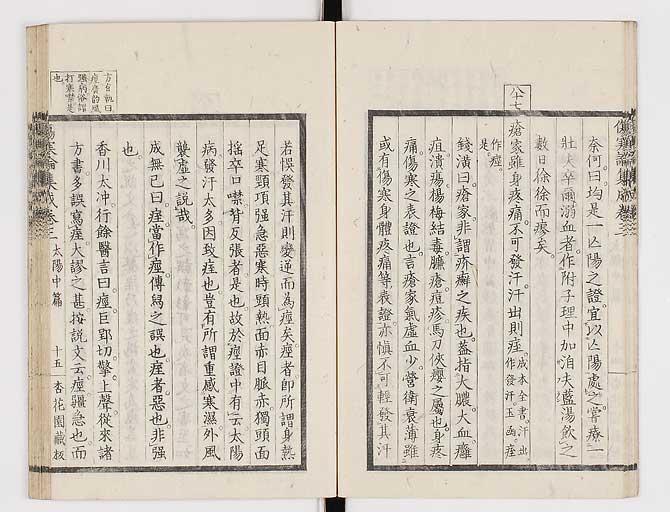 奈何曰均是一亾陽之證宜以亾陽處之嘗療一
壯夫卒爾溺血者作附子理中加泊夫藍湯飲之
數日徐徐而瘳矣
八十七
瘡家雖身疼痛不可發汗汗出則痓
成本全書汗出
作發汗玉函痓
作痙
是
錢潢曰瘡家非謂疥癬之疾也蓋指大膿大血癰
疽潰瘍楊梅結毒臁瘡痘疹馬刀俠癭之屬也身疼
痛傷寒之表證也言瘡家氣虛血少營衛衰薄雖
或有傷寒身體疼痛等表證亦慎不可輕發其汗
傷寒論集成卷三
若悞發其汗則變逆而為痓矣痓者即所謂身熱
足寒頸項强急惡寒時頭熱面赤目脈赤獨頭面
搖卒口噤背反張者是也故於痙證中有云太陽
病發汗太多因致痓也豈有所謂重感寒濕外風
襲虛之說哉
成無己曰痓當作痙傳冩之誤也痓者惡也非强
也
香川太冲行餘醫言曰痙巨郢切擎上聲從來諸
方書多誤寫痓大謬之甚按說文云痙彊急也而
方有執曰
痙瘡的風
强病俗謂
打寒噤是
也
傷寒論集成卷三
太陽中篇
十五
杏花園藏板